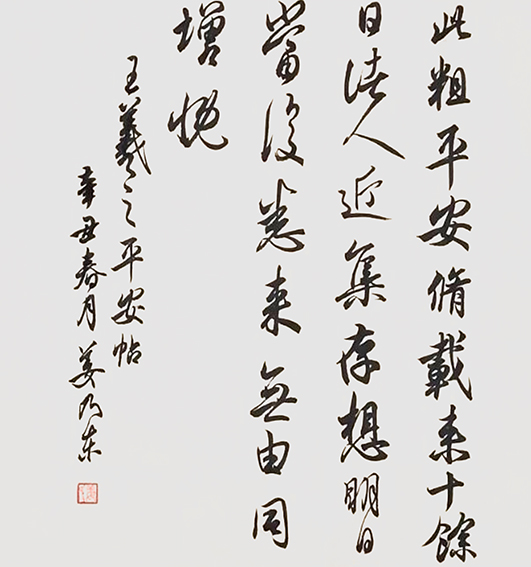 此粗平安脩載来十餘
日諸人近集存想明日
當復悉来無由同
增慨
王羲之平安帖
辛丑春月姜乃东